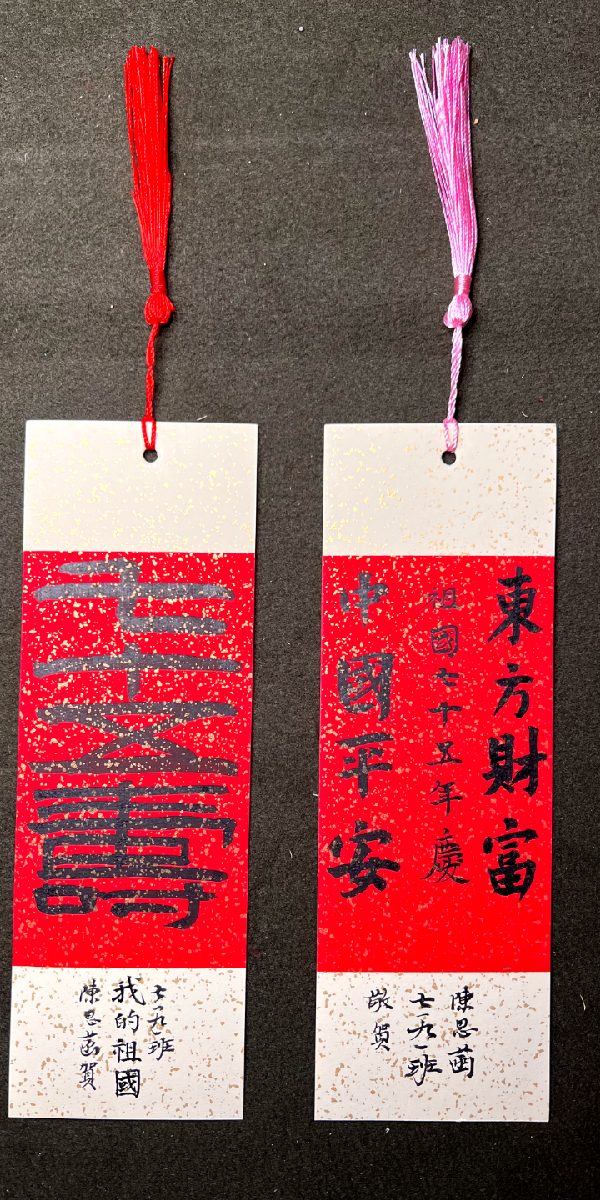 七十五壽
七九一班
我的祖國
陳思菡賀
東方財富
祖國七十五年慶
中國平安
陳思菡
七九一班
敬賀